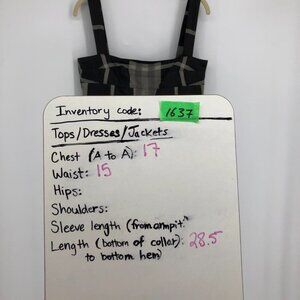 Inventory code: 1637
Tops/Dresses/Jackets
Chest (A to A): 17
Waist: 15
Hips:
Shoulders:
Sleeve length (from armpit:
Length (bottom of collar): 28.5
to bottom hem)